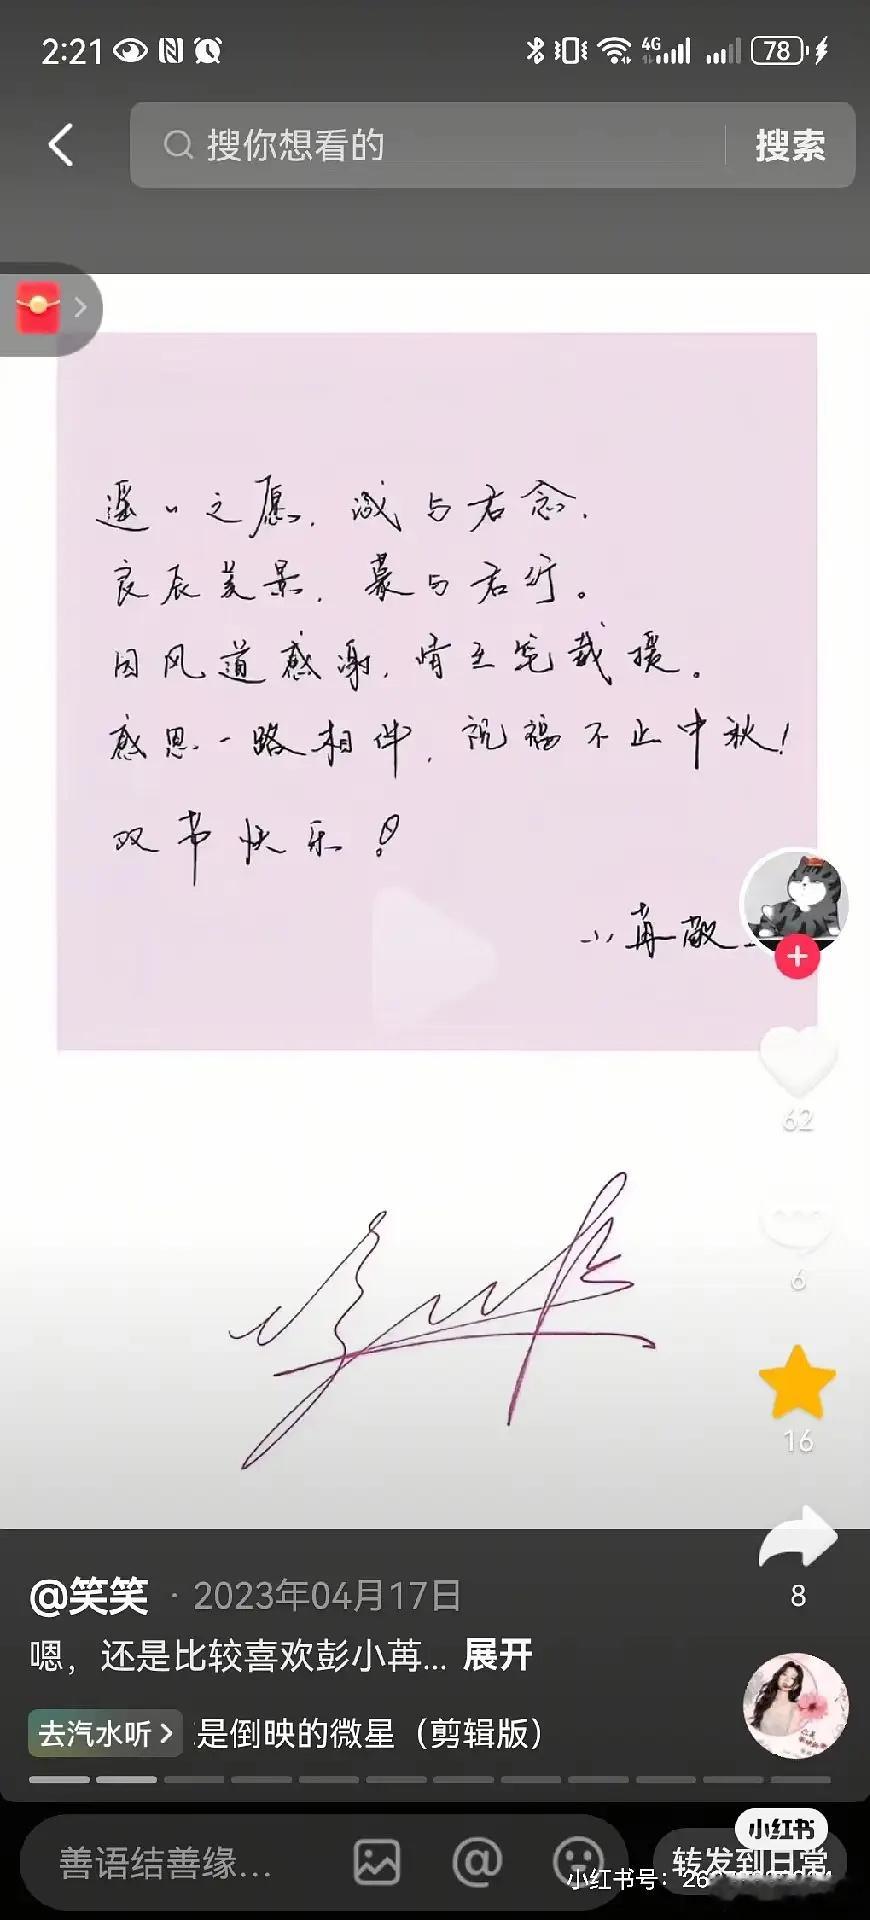 2:21
4G
78
搜你想看的
搜索
遥〃之愿,减与君念.
良辰美景,慕与君行。
因风道感谢,情至笔载援。
感恩一路相伴,祝福不止中秋!
双节快乐!
小苒敬上
62
6
16
8
@笑笑 · 2023年04月17日
嗯，还是比较喜欢彭小苒... 展开
去汽水听 > 是倒映的微星（剪辑版）
善语结善缘...
@
转发到日常
小红书
小红书号：26